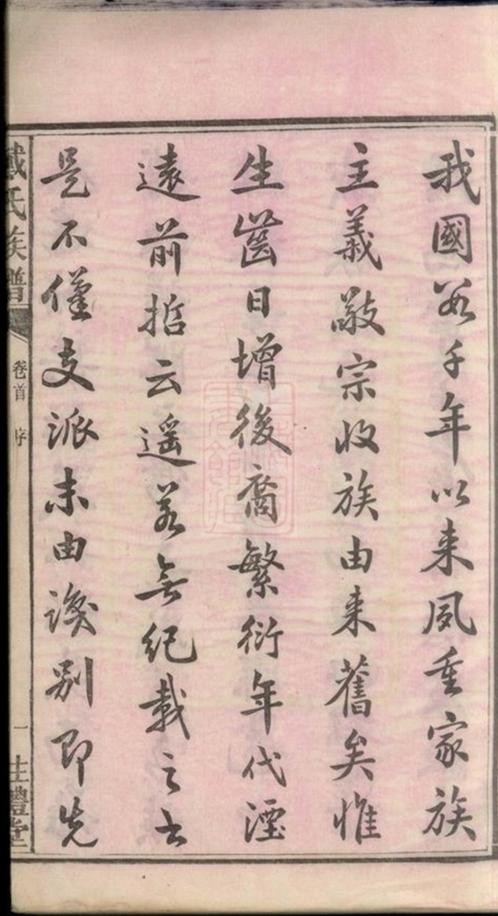 我國數千年以來夙重家族
主義敬宗收族由來舊矣惟
生齒日增後裔繁衍年代湮
遠前哲云遥若無紀載之書
是不僅支派未由識別即先
戴氏族譜 卷首 序 一 禮堂